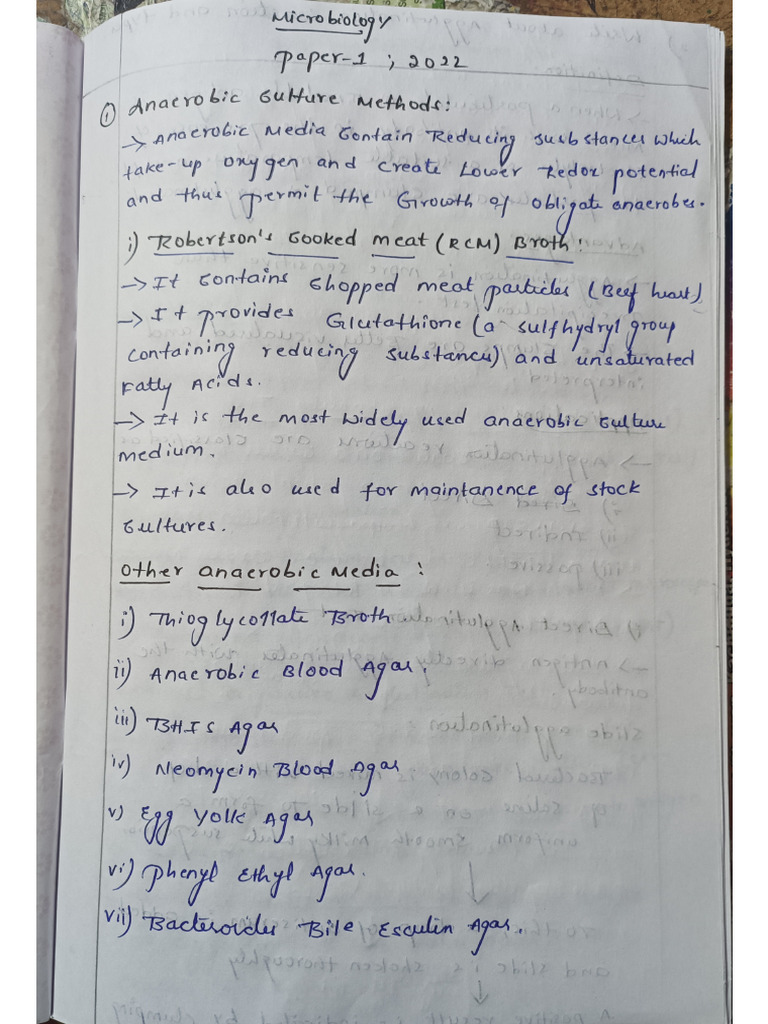 Microbiology
paper-1 ; 2022
① Anaerobic Culture Methods:
→ Anaerobic Media Contain Reducing susbstances which
take-up oxygen and create Lower Redox potential
and thus permit the Growth of obligate anaerobes.
i) Robertson's Cooked meat (RCM) Broth:
→ It Contains Chopped meat particles (Beef heart)
→ It provides Glutathione (a sulfhydryl group
Containing reducing substances) and unsaturated
Fatty Acids.
→ It is the most widely used anaerobic Culture
medium.
→ It is also used for maintanence of stock
Cultures.
Other anaerobic Media :
i) Thioglycollate Broth
ii) Anaerobic Blood Agar.
iii) BHIS Agar
iv) Neomycin Blood Agar
v) Egg Yolk Agar
vi) phenyl Ethyl Agar.
vii) Bacteroides Bile Esculin Agar.